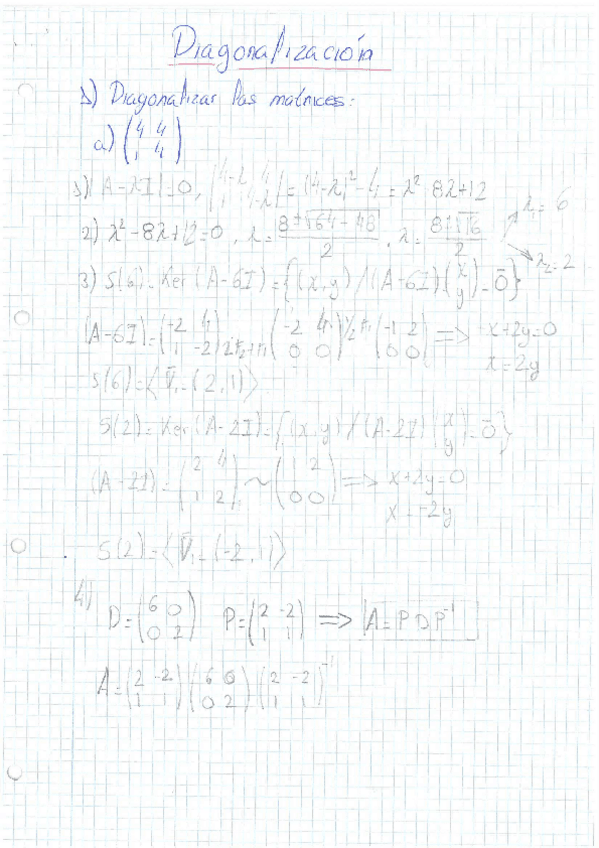 Diagonalización
1) Diagonalizar las matrices:
a) (4 4
1 4)
1) |A-λI|=0, |4-λ 4
1 4-λ| = (4-λ)²-4 = λ² 8λ+12
2) λ²-8λ+12=0, λ = 8±√64-48 / 2, λ = 8±√16 / 2 λ₁=6
λ₂=2
3) S(6) = Ker(A-6I) = {(x,y)/(A-6I)(x
y) = 0̄}
(A-6I) = (-2 4
1 -2) 2F₂+F₁ (-2 4
0 0) 1/2 F₁ (-1 2
0 0) => -x+2y=0
x=2y
S(6) = ⟨V̄₁=(2,1)⟩
S(2) = Ker(A-2I) = {(x,y)/(A-2I)(x
y) = 0̄}
(A-2I) = (2 4
1 2) ~ (1 2
0 0) => x+2y=0
x=-2y
S(2) = ⟨V̄₁=(-2,1)⟩
4) D = (6 0
0 2) P = (2 -2
1 1) => A = PDP⁻¹
A = (2 -2
1 1) (6 0
0 2) (2 -2
1 1)⁻¹